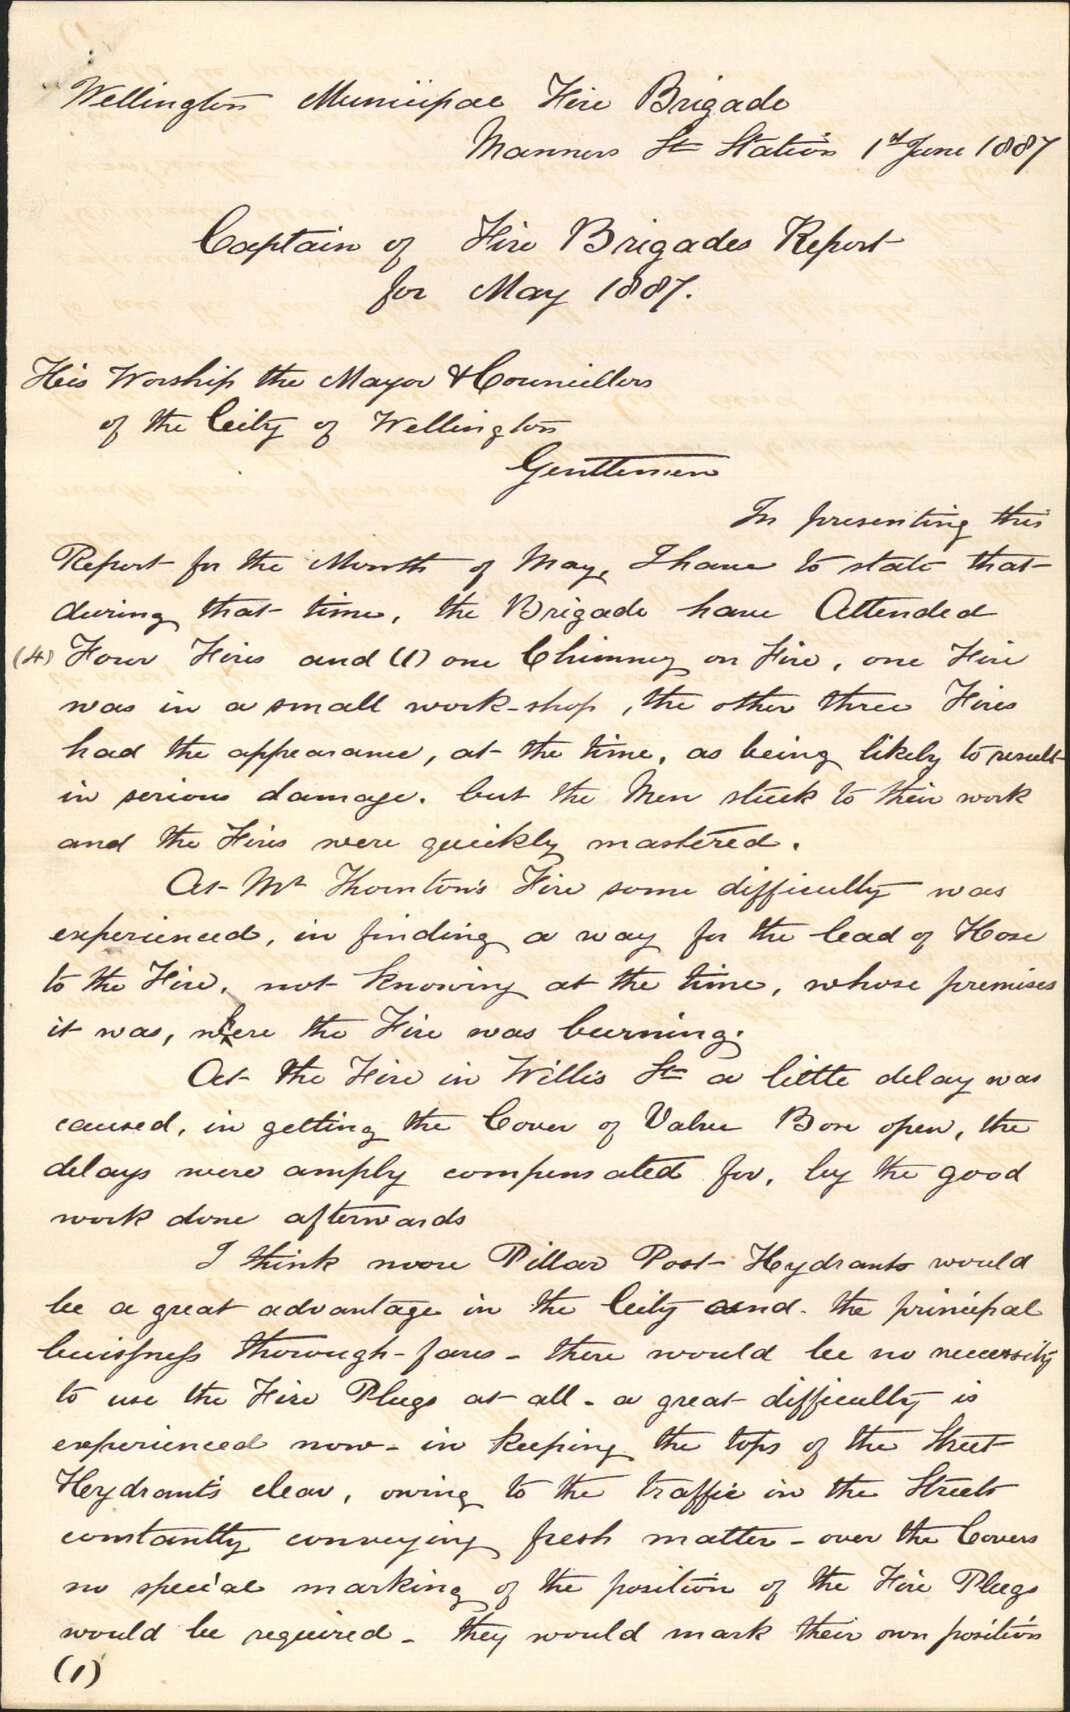 Wellington Municipal Fire Brigade
Manners St Station 1st June 1887
Captain of Fire Brigades Report
for May 1887.
His Worship the Mayor & Councillors
of the City of Wellington
Gentlemen
In presenting this
Report for the Month of May, I have to state that
during that time, the Brigade have Attended
(4) Four Fires and (1) one Chimney on Fire, one Fire
was in a small work-shop, the other three Fires
had the appearance, at the time, as being likely to result
in serious damage. but the Men stuck to their work
and the Fires were quickly mastered.
At Mr Thornton's Fire some difficulty was
experienced, in finding a way for the lead of Hose
to the Fire, not knowing at the time, whose premises
it was, where the Fire was burning.
At the Fire in Willis St a little delay was
caused, in getting the Cover of Valve Box open, the
delays were amply compensated for, by the good
work done afterwards
I think more Pillar Post Hydrants would
be a great advantage in the City and - the principal
buissness thorough-fares - there would be no necessity
to use the Fire Plugs at all - a great difficulty is
experienced now - in keeping the tops of the Street
Hydrants clear, owing to the traffic in the Streets
constantly conveying fresh matter - over the Covers
no special marking of the position of the Fire Plugs
would be required - they would mark their own position
(1)